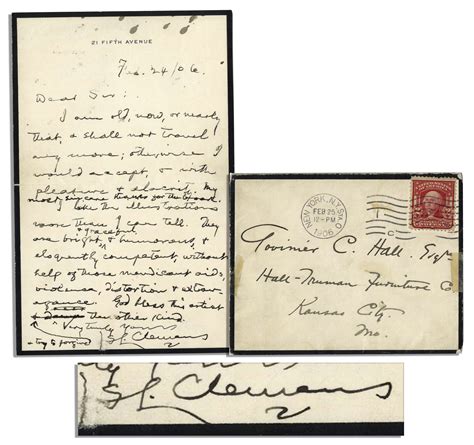 21 FIFTH AVENUE
Feb. 24/06.
Dear Sir:
I am old, now, or nearly
that, & shall not travel
any more; otherwise I
would accept, & with
pleasure & alacrity. My
most sincere thanks for the book.
like the illustrations
more than I can tell. They
& graceful,
are bright, & humorous, &
eloquently competent, without
help of those mendicant aids,
violence, distortion & extrav-
agance. God bless this artist
& damn the other kind.
Very truly yours
& try to forgive
S L. Clemens
NEW YORK, N.Y. STA. O
FEB 25
12-PM
1906
C. Hall, Esqr
Hall-Truman Furniture Co
Kansas City,
Mo.
S L. Clemens